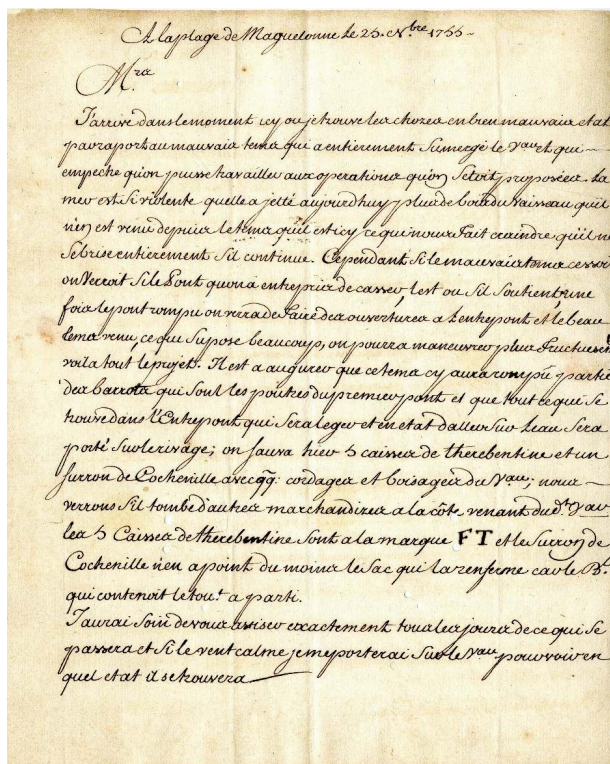 A la plage de Maguelonne Le 25. N.bre 1755
M.rs
J'arrive dans le moment icy ou je trouve les chozes en bien mauvais etat
par raport au mauvais tems qui a entierement sumergé le V.au et qui
empeche qu'on puisse travailler aux operations qu'on s'etoit proposées. La
mer est si violente qu'elle a jetté aujourd'huy plus de bois du Vaisseau qu'il
n'en est venu depuis le tems qu'il est icy ce qui nous fait craindre qu'il ne
se brise entierement s'il continue. Cependant si le mauvais tems cessoit
on Verroit si le Pont qu'on a entrepris de casser, l'est ou s'il soutient, une
fois le pont rompu on verra de faire des ouvertures a L'entrepont et le beau
tems venu, ce que supose beaucoup, on pourra maneuvrer plus fructueu
voila tout le projet. Il est a augurer que ce tems cy aura rompu partie
des barrots qui sont les poutres du premier pont et que tout ce qui se
trouve dans l'Entrepont qui sera leger et en etat d'aller sur L'eau sera
porté sur le rivage; on sauva hier 5 caisses de therebentine et un
surron de Cochenille avec qq: cordages et boisages du V.au; nous
verrons s'il tombe d'autres marchandizes a la côte venant dud.t V.au
les 5 Caisses de therebentine sont a la marque FT et le Surron de
Cochenille n'en a point du moins le sac qui la renferme car le B.l
qui contenoit le tou.t a parti.
J'aurai soin de vous aviser exactement tous les jours de ce qui se
passera et si le vent calme je me porterai sur le V.au pour voir en
quel etat il se trouvera